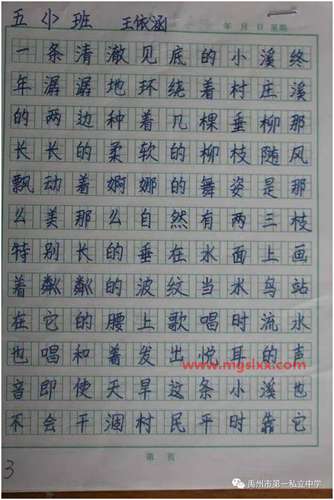 五小班 王依涵
年 月 日 星期
一条清澈见底的小溪终
年潺潺地环绕着村庄溪
的两边种着几棵垂柳那
长长的柔软的柳枝随风
飘动着婀娜的舞姿是那
么美那么自然有两三枝
特别长的垂在水面上画
着粼粼的波纹当水鸟站
在它的腰上歌唱时流水
也唱和着发出悦耳的声
www.mgslxx.com
音即使天旱这条小溪也
不会干涸村民平时靠它
第 页
3
禹州市第一私立中学